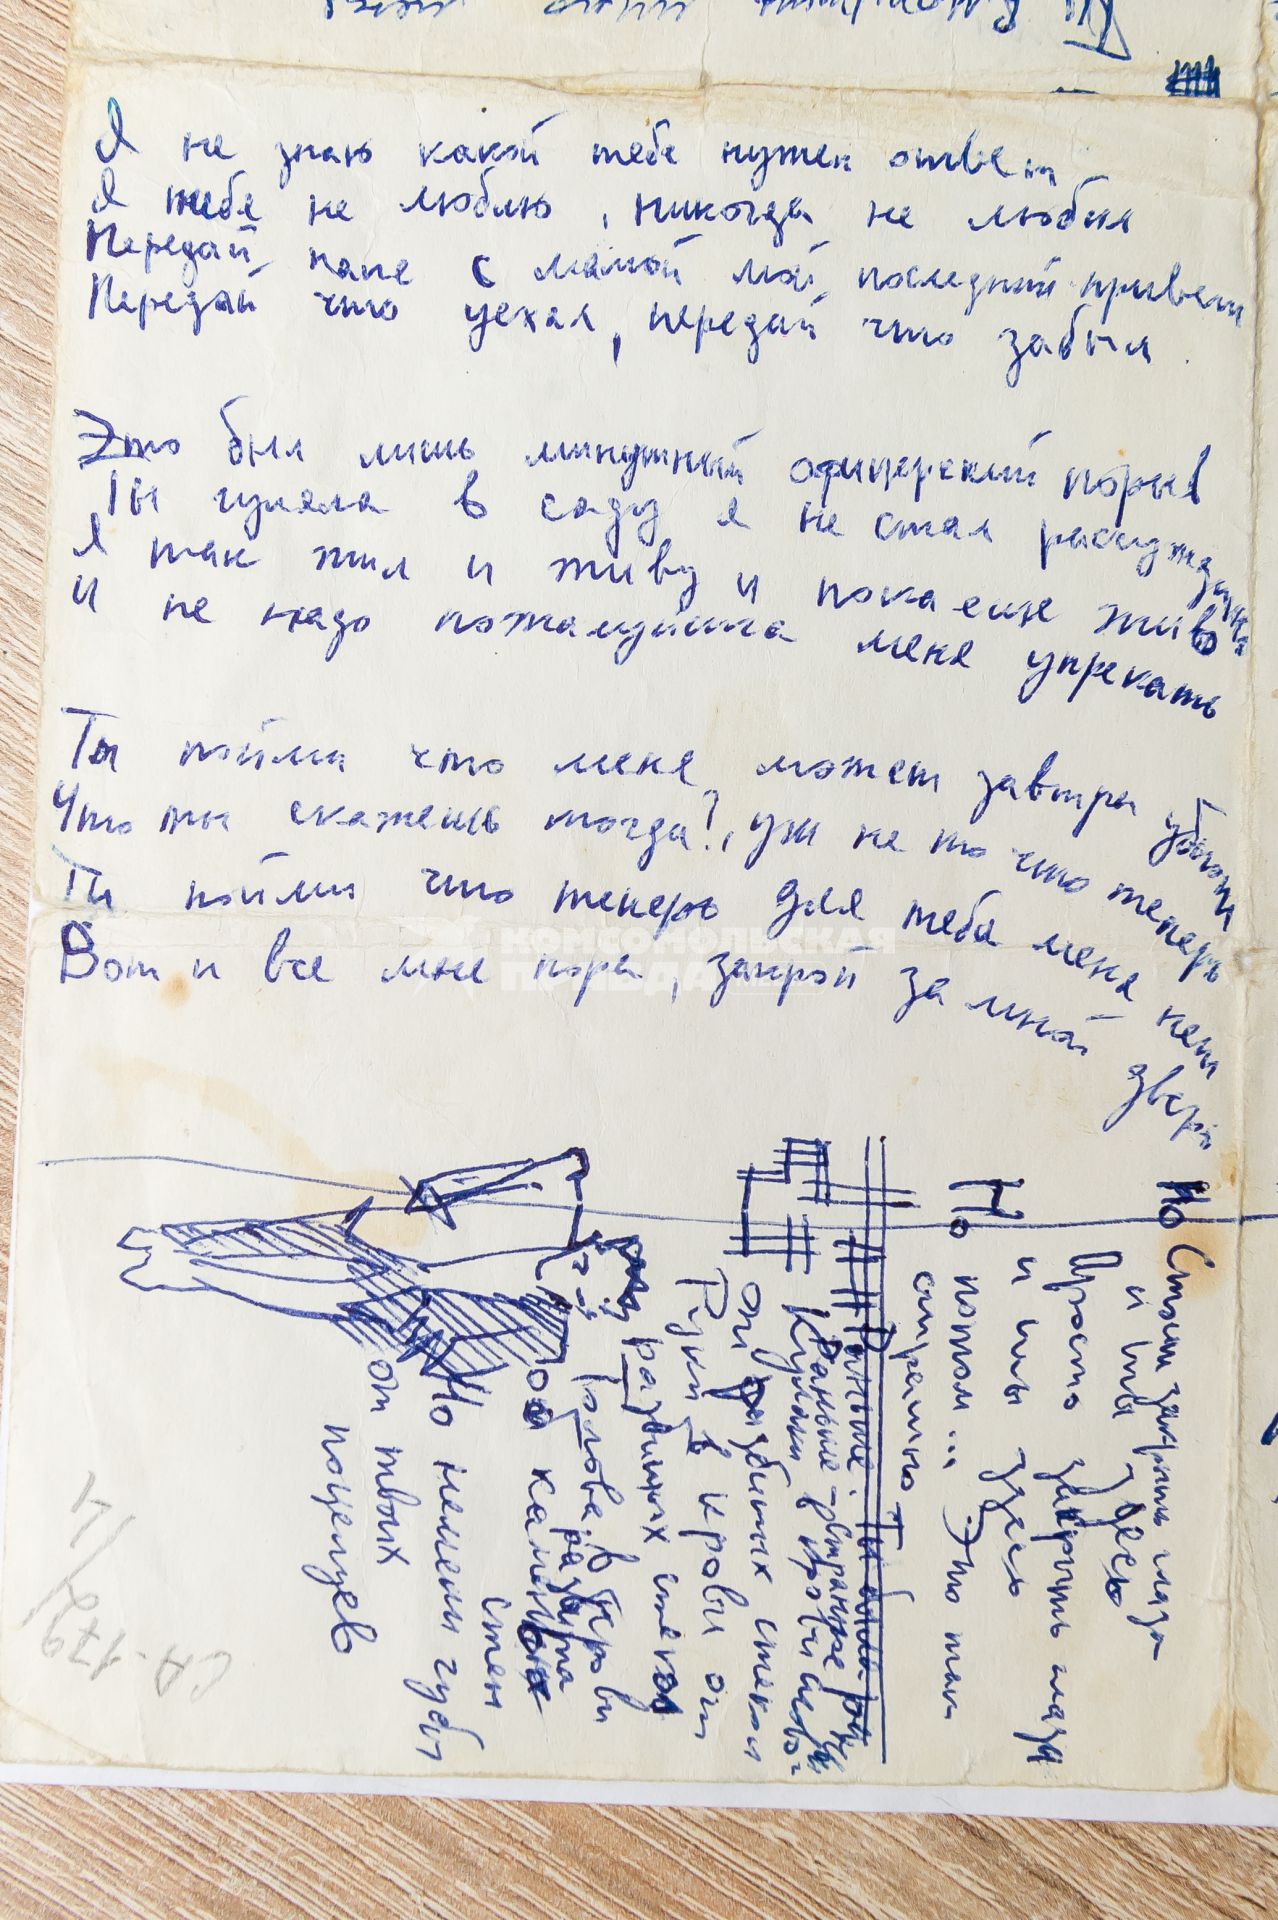 Я не знаю какой тебе нужен ответ
Я тебя не люблю, никогда не любил
Передай папе с мамой мой последний привет
Передай что уехал, передай что забыл.
Это был лишь минутный офицерский порыв
Ты гуляла в саду я не стал рассуждать
Я так жил и живу и пока еще жив
И не надо пожалуйста меня упрекать
Ты пойми что меня может завтра убьют
Что ты скажешь тогда?, уж не то что теперь
Ты пойми что теперь для тебя меня нет
Вот и все мне пора, закрой за мной дверь
Но Стоит закрыть глаза
и ты здесь
Просто закрыть глаза
и ты здесь
Но потом... Это так
страшно
Раньше
Кулаки в крови
От разбитых стекол
Руки в крови от
разбитых стекол
Голова в крови
разбита
от каменных
стен
Но немеют губы
от твоих
поцелуев
СА-179/1
КОМСОМОЛЬСКАЯ
ПРАВДА